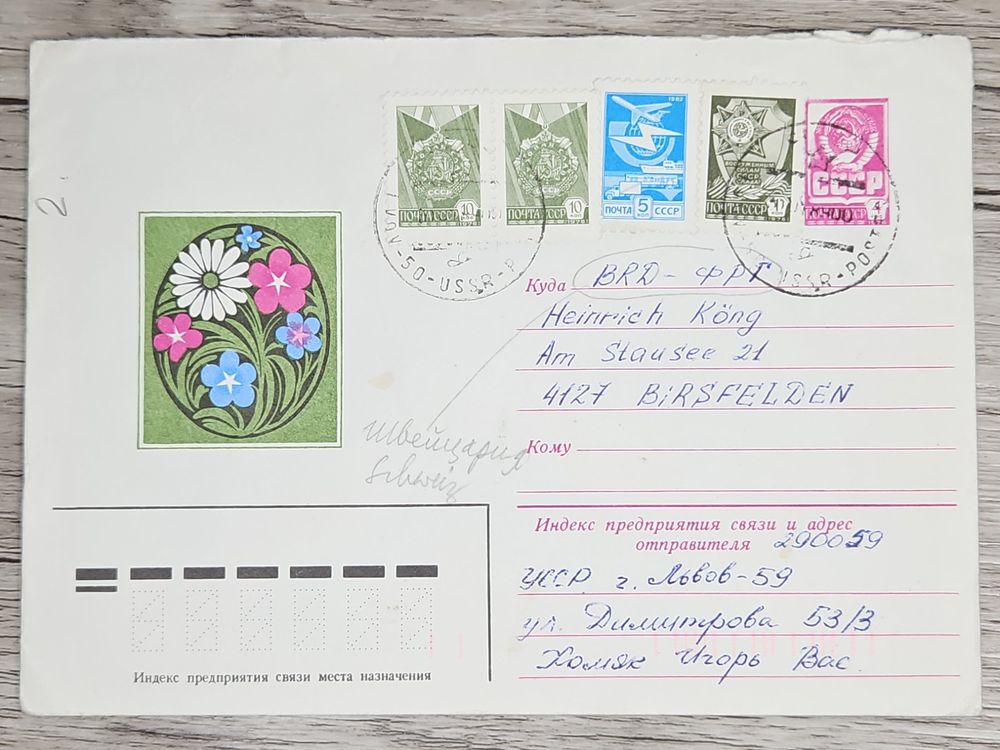 2
СССР
ПОЧТА СССР 10 коп
1976
СССР
ПОЧТА СССР 10 коп
1976
1982
ПОЧТА 5 коп СССР
ВООРУЖЕННЫМ СИЛАМ СССР
ПОЧТА СССР
1976
СССР
50-USSR-P
USSR-POST
Куда BRD - ФРГ
Heinrich Köng
Am Stausee 21
4127 BiRSFELDEN
Швейцария
Schweiz
Кому
Индекс предприятия связи и адрес
отправителя 290059
УССР г. Львов-59
ул. Димитрова 53/3
Хомяк Игорь Вас.
Индекс предприятия связи места назначения